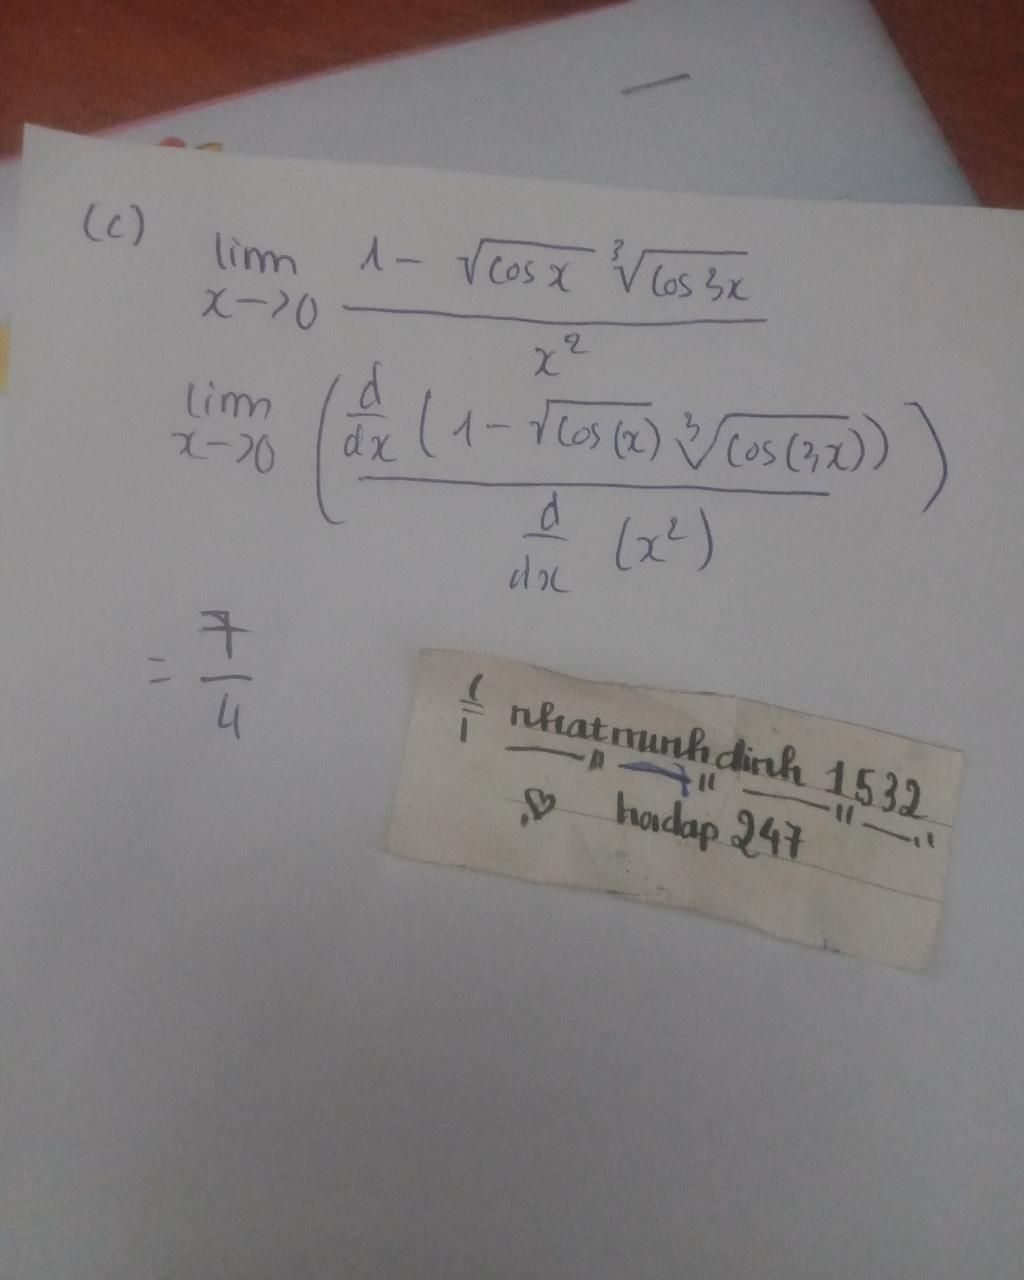 (c) lim x->0 1 - √cos x ³√cos 3x / x²
lim x->0 ( d/dx (1 - √cos(x) ³√cos(3x)) / d/dx (x²) )
= 7/4
nhatminhdinh 1532
hoidap 247